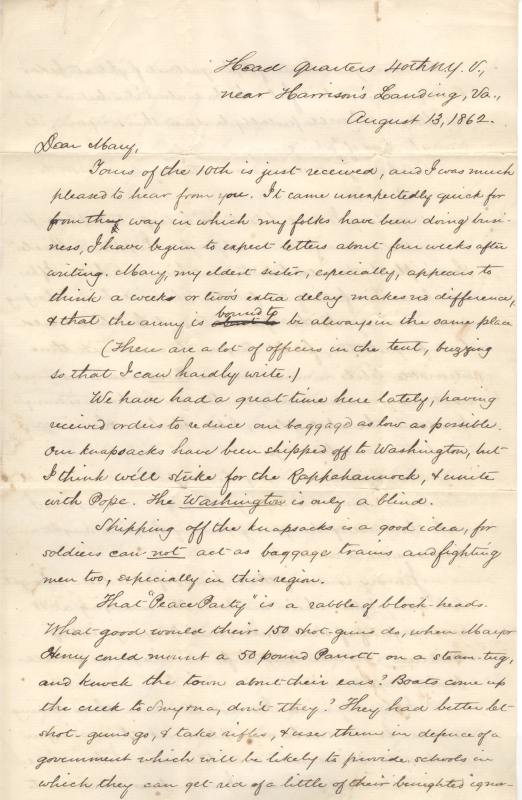 Head Quarters 40th N.Y. V.,
near Harrison's Landing, Va.,
August 13, 1862.
Dear Mary,
Yours of the 10th is just received, and I was much
pleased to hear from you. It came unexpectedly quick for
from the way in which my folks have been doing busi-
ness, I have begun to expect letters about four weeks after
writing. Mary, my eldest sister, especially, appears to
think a week or two's extra delay makes no difference,
& that the army is bound to be always in the same place
(There are a lot of officers in the tent, buzzing
so that I can hardly write.)
We have had a great time here lately, having
received orders to reduce our baggage as low as possible.
Our knapsacks have been shipped off to Washington, but
I think we'll strike for the Rappahannock, & unite
with Pope. The Washington is only a blind.
Shipping off the knapsacks is a good idea, for
soldiers can not act as baggage trains and fighting
men too, especially in this region.
That "Peace Party" is a rabble of block-heads.
What good would their 150 shot-guns do, when Mayor
Henry could mount a 50 pound Parrott on a steam-tug,
and knock the town about their ears? Boats come up
the creek to Smyrna, don't they? They had better let
shot-guns go, & take rifles, & use them in defence of a
government which will be likely to provide schools in
which they can get rid of a little of their benighted ignor-